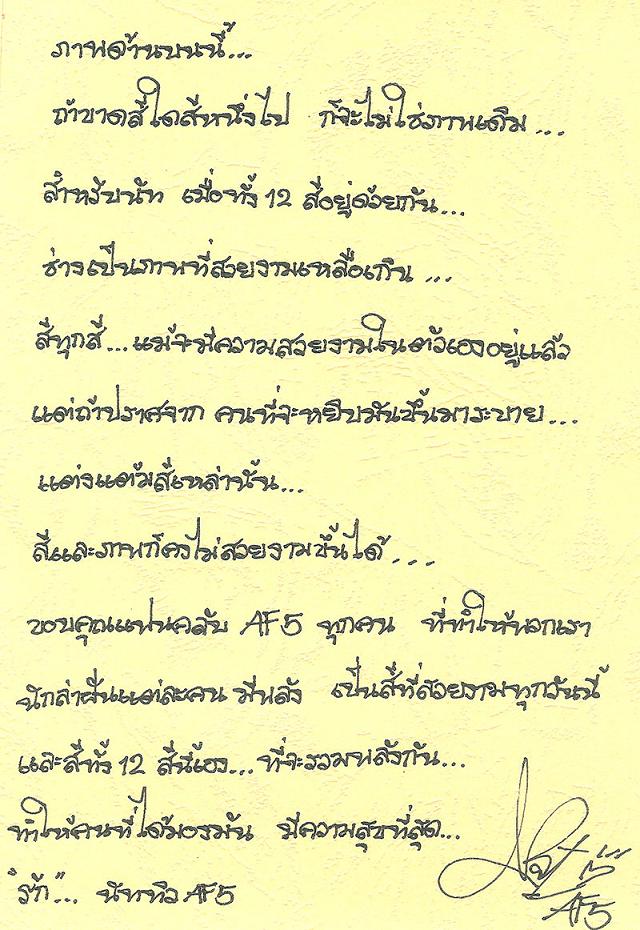 ภาพด้านบนนี้...
ถ้าขาดสีใดสีหนึ่งไป ก็จะไม่ใช่ภาพเดิม...
สำหรับนัท เมื่อทั้ง 12 สีอยู่ด้วยกัน...
ช่างเป็นภาพที่สวยงามเหลือเกิน...
สีทุกสี...แม้จะมีความสวยงามในตัวเองอยู่แล้ว
แต่ถ้าปราศจาก คนที่จะหยิบมันขึ้นมาระบาย...
แต่งแต้มสีเหล่านั้น...
สีและภาพก็คงไม่สวยงามขึ้นได้...
ขอบคุณแฟนคลับ AF5 ทุกคน ที่ทำให้พวกเรา
นักล่าฝันแต่ละคน มีพลัง เป็นสีที่สวยงามทุกวันนี้
และสีทั้ง 12 สีนี้เอง...ที่จะรวมพลังกัน...
ทำให้คนที่ได้มองมัน มีความสุขที่สุด...
"รัก"... นัททิว AF5
AF5